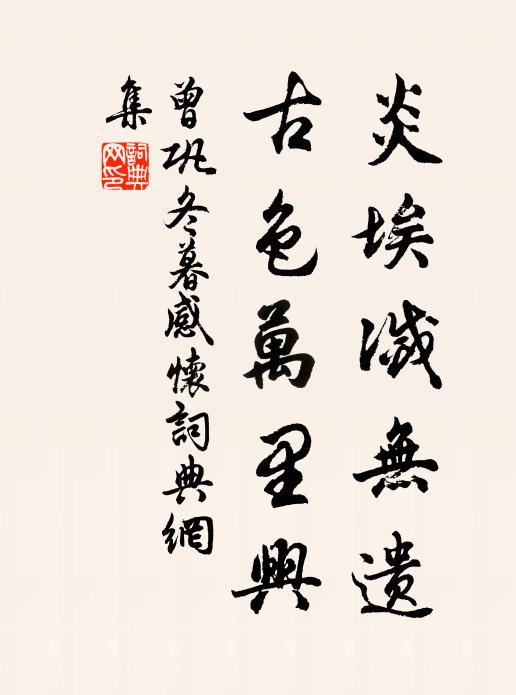 炎埃滅無遺
古色萬里興
曾巩冬暮感懷詞典網
集
詞典
网印